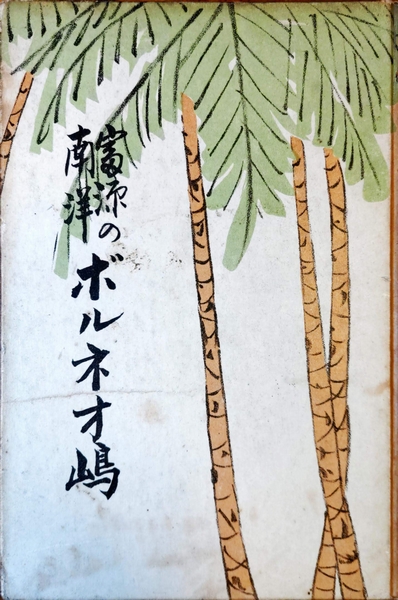 富源の
南洋
ボルネオ嶋